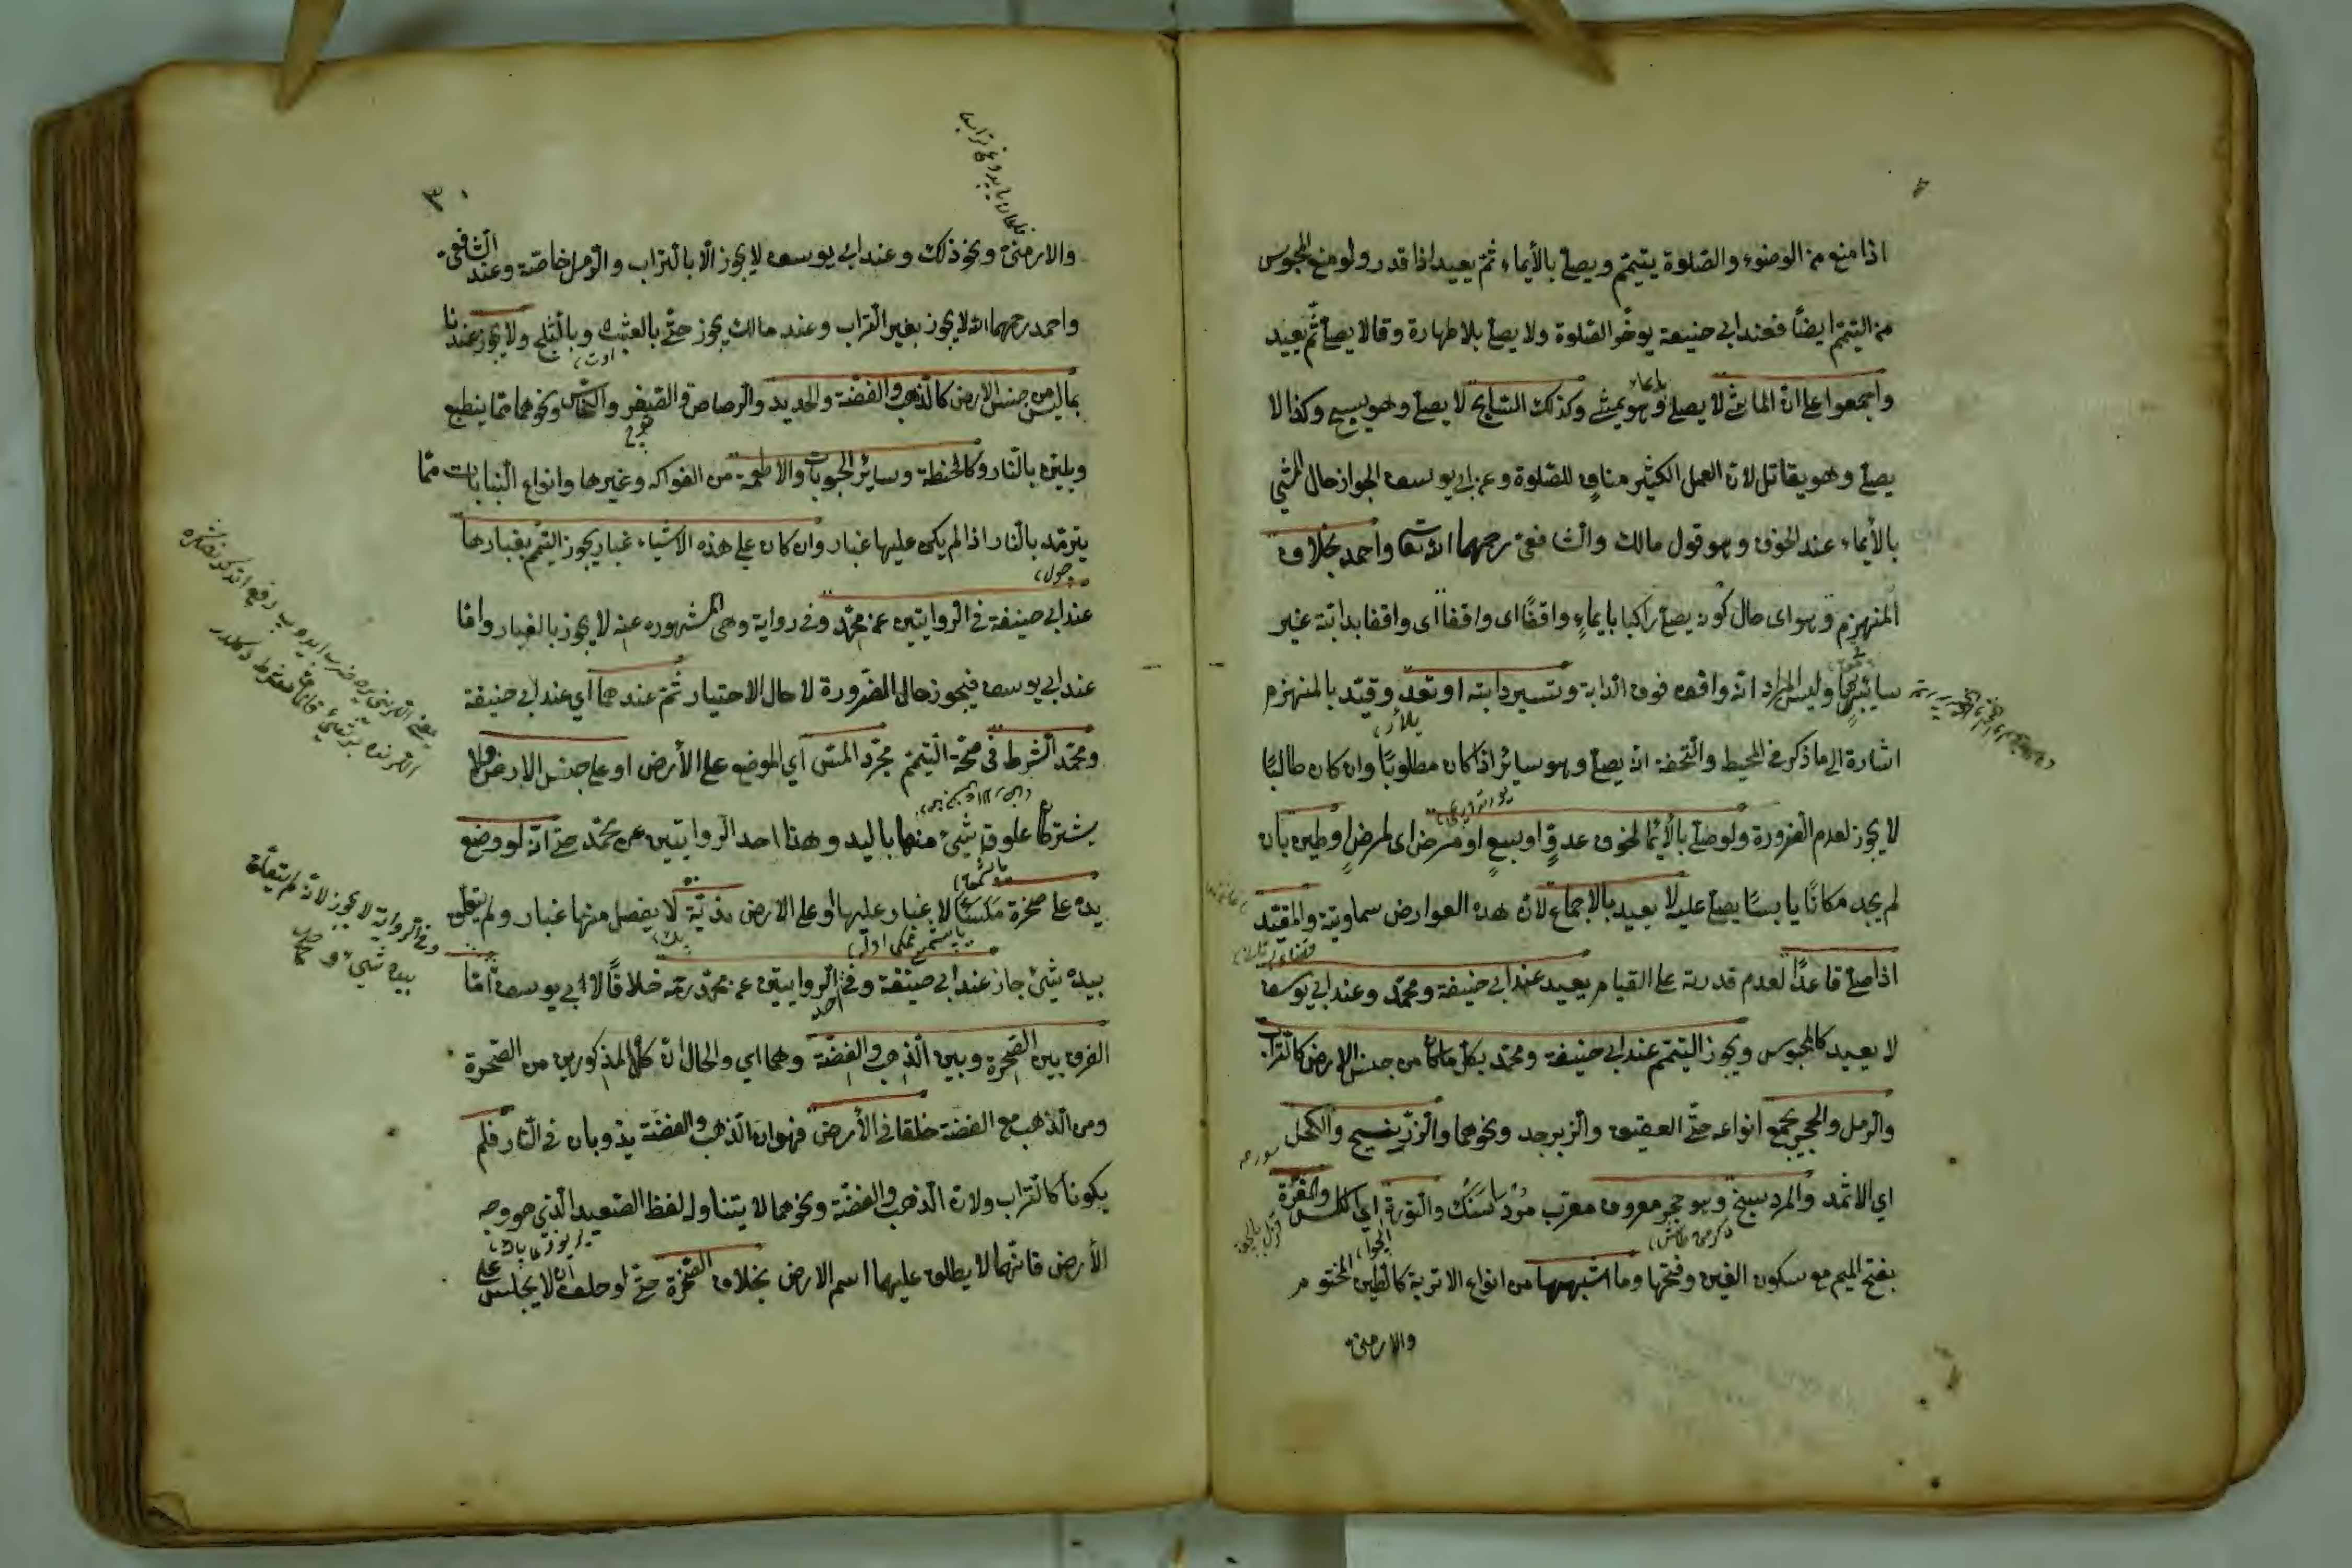 اذا منع من الوضوء والصلوة يتيمم ويصلي بالأيماء ثم يعيد اذا قدر ولو منع المحبوس
من التيمم ايضًا فعند ابي حنيفة يوخر الصلوة ولا يصلي بلا طهارة وقالا يصلي ثم يعيد
واجمعوا على ان الماشي لا يصلي وهو يمشي وكذلك السابح لا يصلي وهو يسبح وكذا لا
يصلي وهو يقاتل لان العمل الكثير مناف للصلوة وعن ابي يوسف الجواز حال المشي
بالأيماء عند الخوف وهو قول مالك والشافعي رحمهما الله تعا واحمد بخلاف
المنهزم وهو اي حال كونه يصلي راكبا بايماء واقفًا اي واقفًا اي واقفا بدابته غير
سائر بها وليس المراد انه واقف فوق الدابة وتسير دابته او تعدو وقيد بالمنهزم
اشارة الى ما ذكر في المحيط والتحفة انه يصلي وهو سائر اذا كان مطلوبًا وان كان طالبًا
لا يجوز لعدم الضرورة ولو صلى بالأيما لخوف عدوٍّ او سبعٍ او مرض اي لمرضٍ وطين بان
لم يجد مكانًا يابسًا يصلي عليه لا يعيد بالاجماع لان هذه العوارض سماوية والمقيد
اذا صلى قاعدًا لعدم قدرته على القيام يعيد عند ابي حنيفة ومحمد وعند ابي يوسف
لا يعيد كالمحبوس ويجوز التيمم عند ابي حنيفة ومحمد بكل ما كان من جنس الارض كالتراب
والرمل والحجر بجميع انواعه حتى العقيق والزبرجد ونحوهما والزرنيخ والكحل
اي الاثمد والمردسنج وهو حجر معروف معرب مردارسنك والنورة اي الكلس والمغرة
بفتح الميم مع سكون الغين وفتحها وما اشبهها من انواع الاتربة كالطين المختوم
والارمني
٣٠
والارمني ونحو ذلك وعند ابي يوسف لا يجوز الا بالتراب والرمل خاصة وعند الشافعي
واحمد رحمهما الله لا يجوز بغير التراب وعند مالك يجوز حتى بالعشب وبالثلج ولا يجوز عندنا
بما ليس من جنس الارض كالذهب والفضة والحديد والرصاص والصفر والنحاس ونحوهما مما ينطبع
ويلين بالنار وكالحنطة وسائر الحبوبات والاطعمة من الفواكه وغيرها وانواع النباتات مما
يترمد بالنار اذا لم يكن عليها غبار وان كان على هذه الاشياء غبار يجوز التيمم بغبارها
عند ابي حنيفة في الروايتين عن محمد وفي رواية وهي المشهورة عنه لا يجوز بالغبار واما
عند ابي يوسف فيجوز حال الضرورة لا حال الاختيار ثم عندهما اي عند ابي حنيفة
ومحمد الشرط في صحة التيمم مجرد المس اي الموضع على الأرض او على جنس الارض ولا
يشترط علوق شيء منها باليد وهذا احد الروايتين عن محمد حتى انه لو وضع
يده على صخرة ملساء لا غبار عليها او على الارض ندية لا يفصل منها غبار ولم يتعلق
بيده شيئ جاز عند ابي حنيفة وفي احد الروايتين عن محمد رحمه خلافًا لابي يوسف امّا
الفرق بين الصخرة وبين الذهب والفضة وهما اي والحال ان كل المذكورين من الصخرة
ومن الذهب مع الفضة خلقا في الأرض فهو ان الذهب والفضة يذوبان في النار فلم
يكونا كالتراب ولان الذهب والفضة ونحوهما لا يتناوله لفظ الصعيد الذي هو وجه
الأرض فانهما لا يطلق عليهما اسم الارض بخلاف الصخرة حتى لو حلف ان لا يجلس على
وفي الرواية لا يجوز لانه لم يتعلق
بيده شيئ